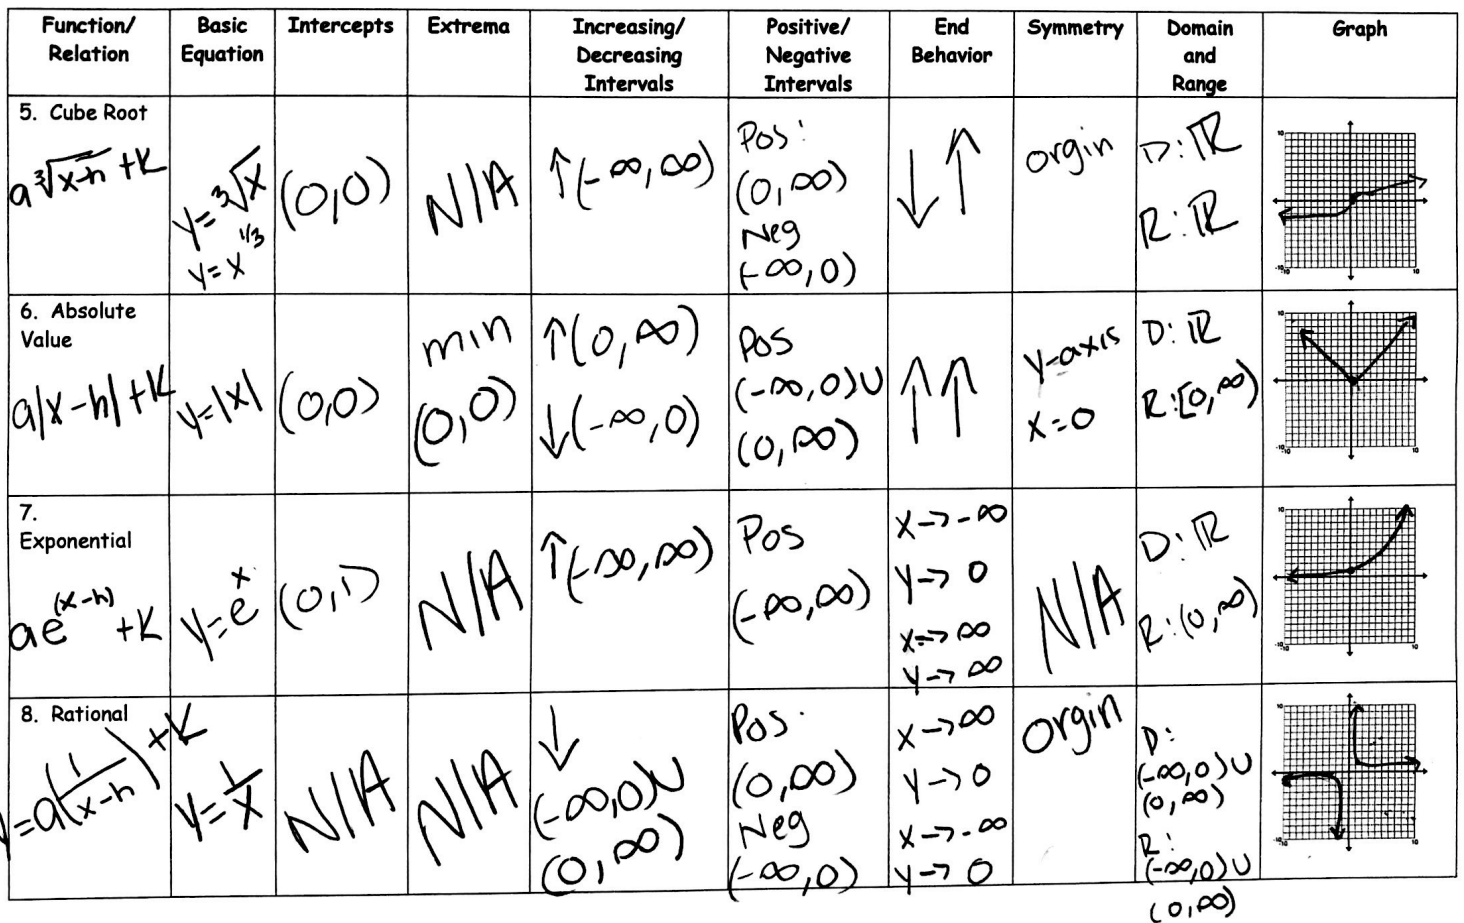 Function/
Relation
Basic
Equation
Intercepts
Extrema
Increasing/
Decreasing
Intervals
Positive/
Negative
Intervals
End
Behavior
Symmetry
Domain
and
Range
Graph
5. Cube Root
a∛(x-h) +K
y=∛x
y=x^1/3
(0,0)
N/A
↑(-∞,∞)
Pos:
(0,∞)
Neg
(-∞,0)
↓↑
orgin
D:ℝ
R:ℝ
-10
10
6. Absolute
Value
a|x-h|+K
y=|x|
(0,0)
min
(0,0)
↑(0,∞)
↓(-∞,0)
Pos
(-∞,0)∪
(0,∞)
↑↑
y-axis
x=0
D:ℝ
R:[0,∞)
10
-10
10
7.
Exponential
ae^(x-h) +K
y=e^x
(0,1)
N/A
↑(-∞,∞)
Pos
(-∞,∞)
x→-∞
y→0
x→∞
y→∞
N/A
D:ℝ
R:(0,∞)
10
-10
10
8. Rational
y=a(1/(x-h))+K
y=1/x
N/A
N/A
↓
(-∞,0)∪
(0,∞)
Pos:
(0,∞)
Neg
(-∞,0)
x→∞
y→0
x→-∞
y→0
orgin
D:
(-∞,0)∪
(0,∞)
R:
(-∞,0)∪
(0,∞)
10
-10
10